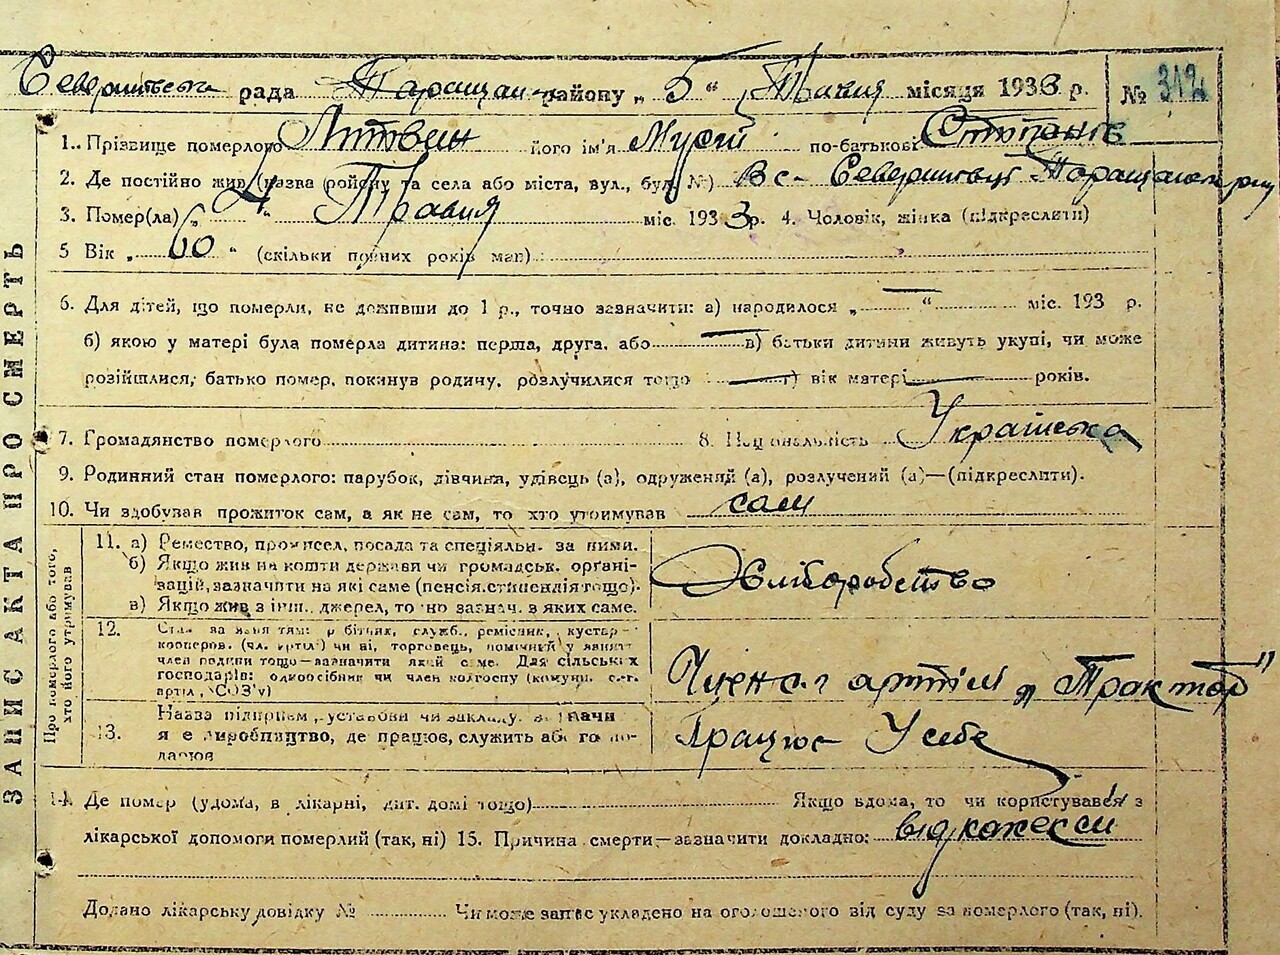 рада районy „ 5 “ Травня місяця 1933 р. № 312
1. Прізвище померлого Литвин його ім'я Мусій по-батькові
2. Де постійно жив (назва району та села або міста, вул., буд. №) в с.
3. Помер(ла) „ 4 “ Травня міс. 1933 р. 4. Чоловік, жінка (підкреслити)
5 Вік „ 60 “ (скільки повних років мав)
6. Для дітей, що померли, не доживши до 1 р., точно зазначити: а) народилося „ — “ міс. 193 р.
б) якою у матері була померла дитина: перша, друга, або — в) батьки дитини живуть укупі, чи може
розійшлися, батько помер, покинув родичу, розлучилися тощо — г) вік матері — років.
7. Громадянство померлого 8. Національність Українська
9. Родинний стан померлого: парубок, дівчина, удівець (а), одружений (а), розлучений (а)—(підкреслити).
10. Чи здобував прожиток сам, а як не сам, то хто утримував сам
ЗАПИС АКТА ПРО СМЕРТЬ
Про померлого або того,
хто його утримував
11. а) Ремество, промисел, посада та спеціяльн. за ними.
б) Якщо жив на кошти держави чи громадськ. орґані-
зацій, зазначити на які саме (пенсія, стипендія тощо).
в) Якщо жив з інш. джерел, то зазнач. з яких саме.
Хліборобство
12. робітник, служб., ремісник, кустар
кооперов. (чл. артілі) чи ні, торговець, помічний у занят.
член родини тощо—зазначити який саме. Для сільських
господарів: одноосібник чи член колгоспу (комуни, с.-г.
артіл, „СОЗ'у)
Член с. г артілі „ Трактор "
13. Назва підприєм., установи чи закладу,
виробництво, де працює, служить або
Працює У себе
14. Де помер (удома, в лікарні, дит. домі тощо) Якщо вдома, то чи користувався з
лікарської допомоги померлий (так, ні) 15. Причина смерти—зазначити докладно: від
Додано лікарську довідку № Чи може запис укладено на оголошеного від суду за померлого (так, ні).